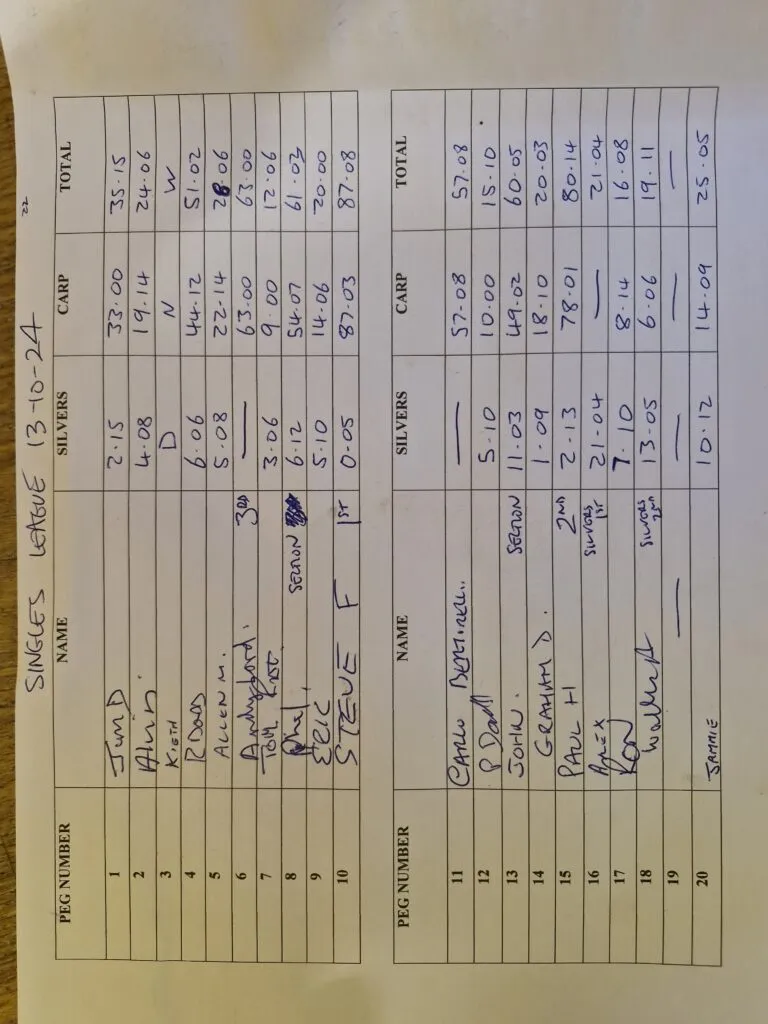 22
SINGLES LEAGUE 13-10-24
PEG NUMBER NAME SILVERS CARP TOTAL
1 Jim D 2.15 33.00 35.15
2 4.08 19.14 24.06
3 KIETH D N W
4 R DODD 6.06 44.12 51.02
5 ALLEN M. 5.08 22.14 28.06
6 Andy ford. 3RD — 63.00 63.00
7 TOM 3.06 9.00 12.06
8 Phil. SECTION 6.12 54.07 61.03
9 ERIC 5.10 14.06 20.00
10 STEVE F 1ST 0.05 87.03 87.08
PEG NUMBER NAME SILVERS CARP TOTAL
11 CARLO — 57.08 57.08
12 P 5.10 10.00 15.10
13 JOHN. SECTION 11.03 49.02 60.05
14 GRAHAM D. 1.09 18.10 20.03
15 PAUL H 2ND 2.13 78.01 80.14
16 ALEX SILVERS 1ST 21.04 — 21.04
17 RON 7.10 8.14 16.08
18 SILVERS 2ND 13.05 6.06 19.11
19 — — — —
20 JAMMIE 10.12 14.09 25.05